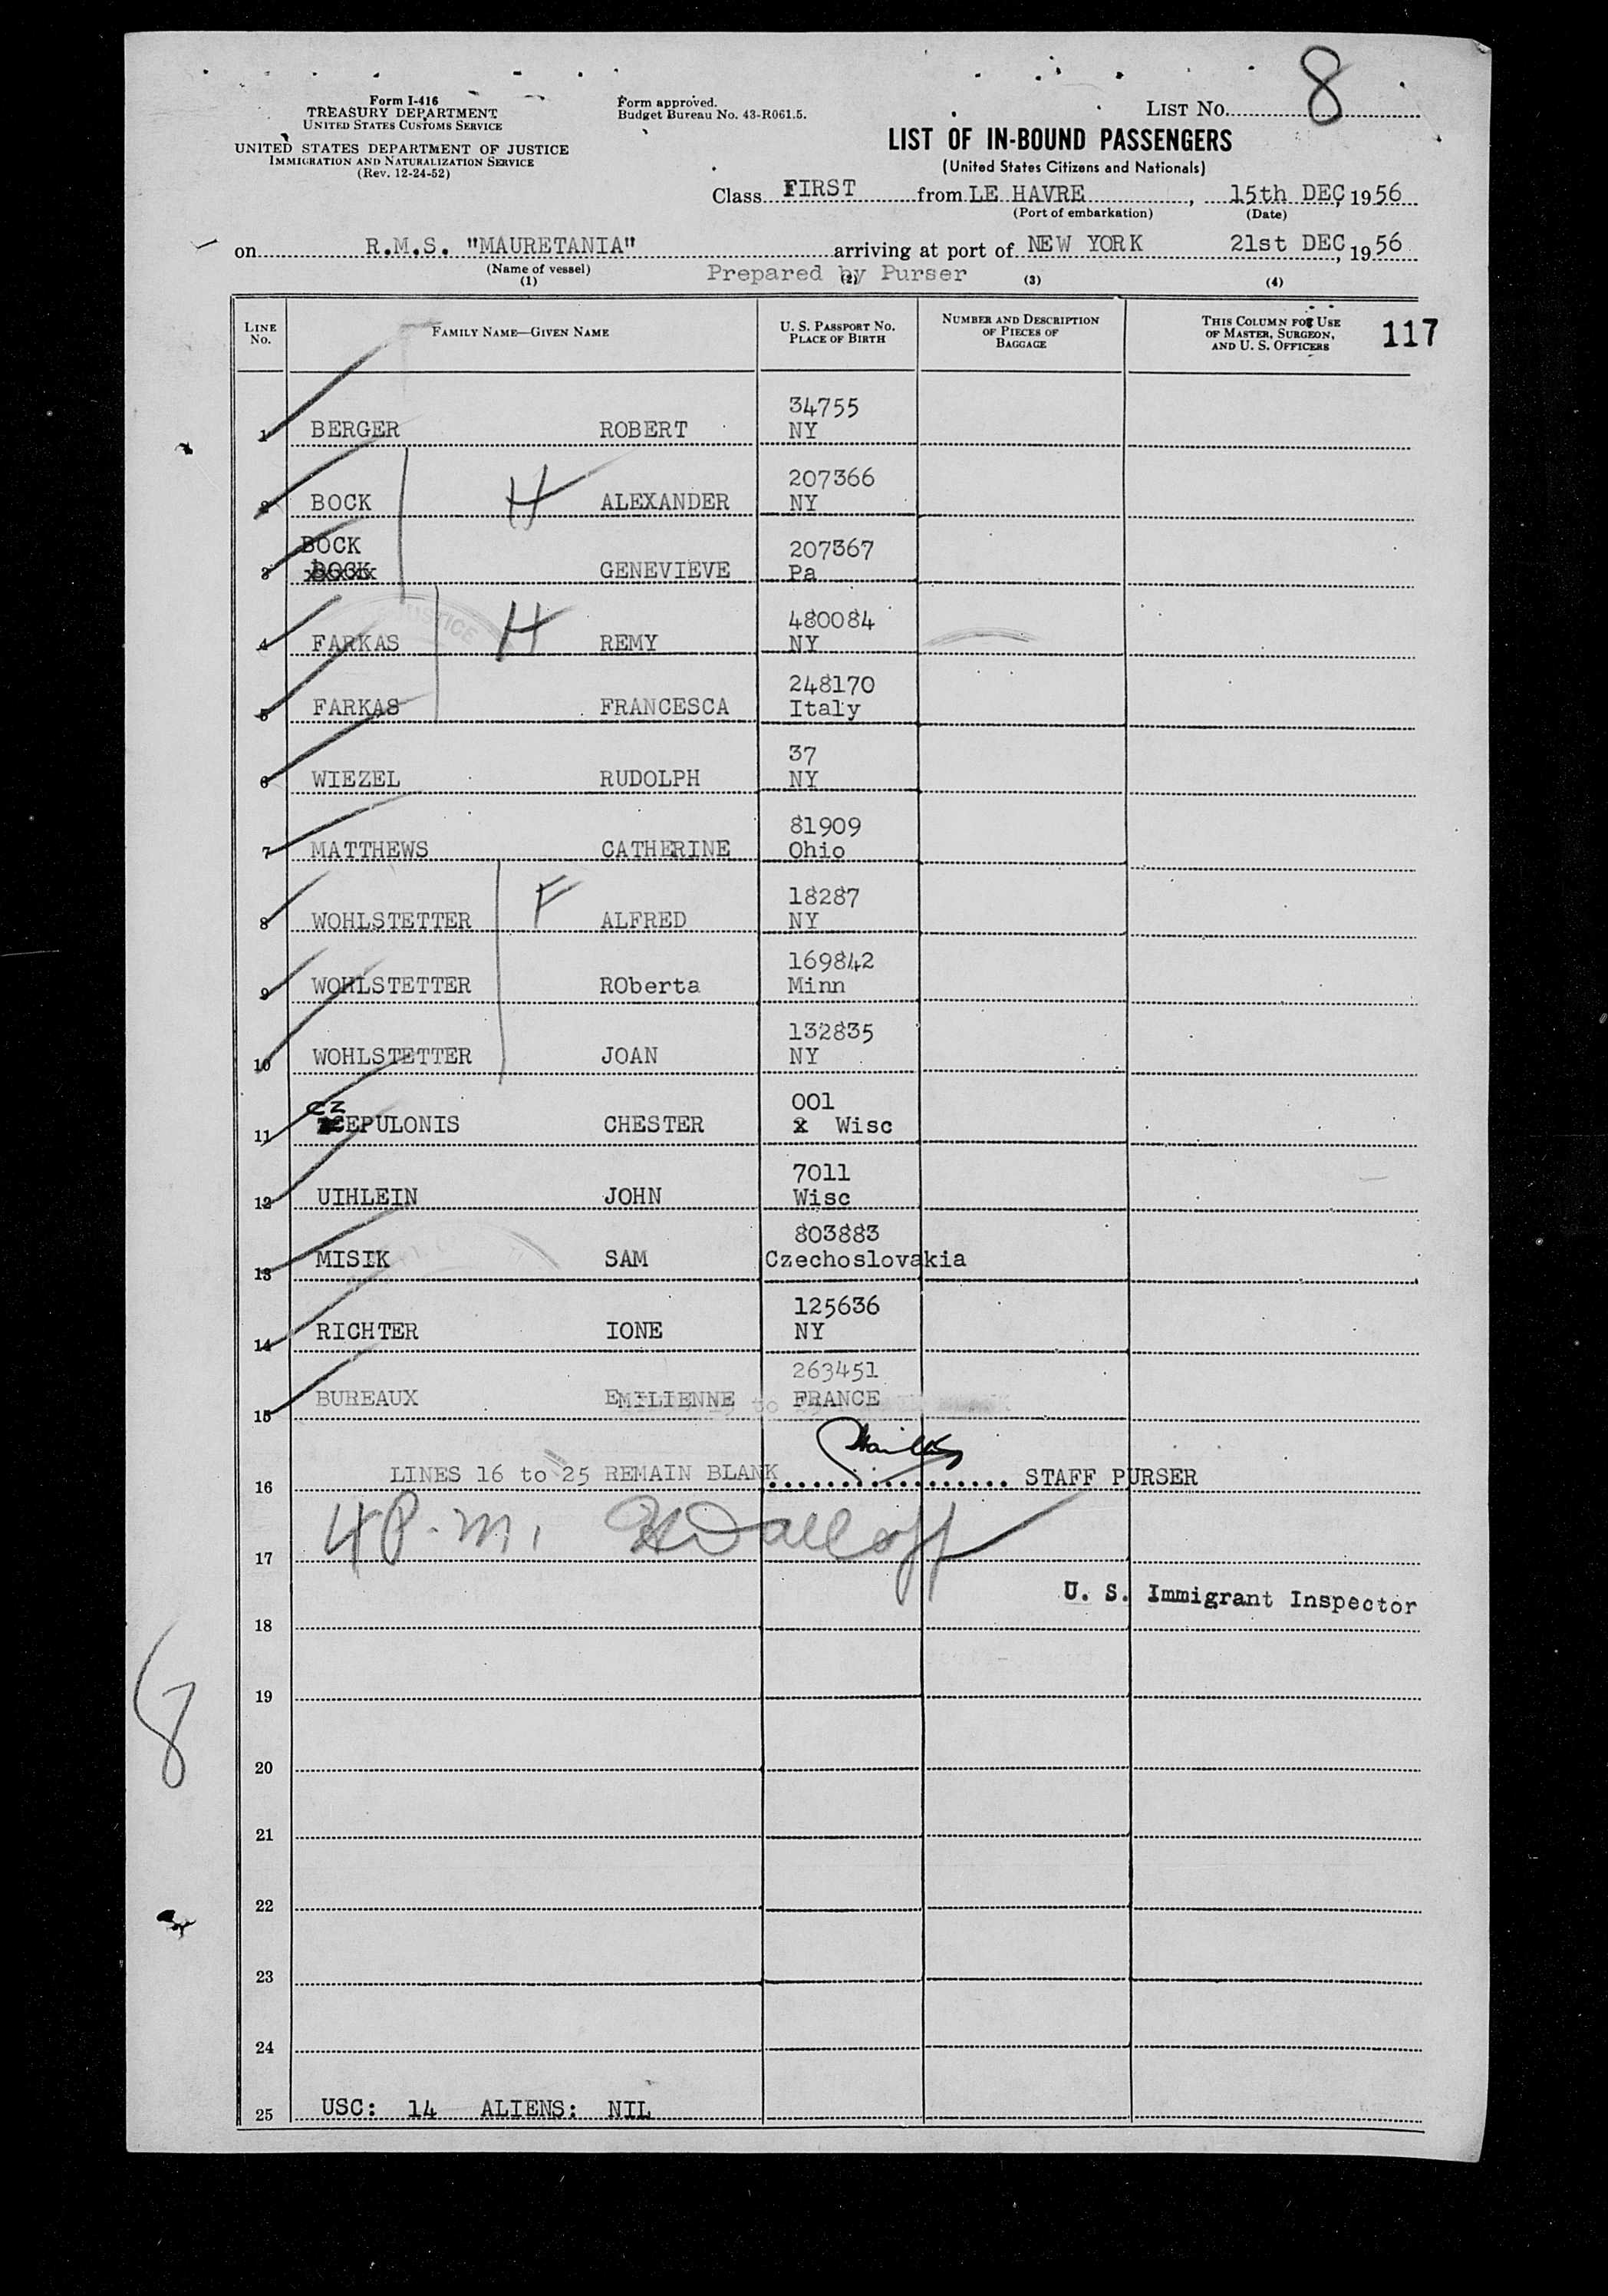 Form I-416
TREASURY DEPARTMENT
UNITED STATES CUSTOMS SERVICE
UNITED STATES DEPARTMENT OF JUSTICE
IMMIGRATION AND NATURALIZATION SERVICE
(Rev. 12-24-52)
Form approved.
Budget Bureau No. 43-R061.5.
LIST NO. 8
LIST OF IN-BOUND PASSENGERS
(United States Citizens and Nationals)
Class FIRST from LE HAVRE, 15th DEC, 1956
(Port of embarkation) (Date)
on R.M.S. "MAURETANIA" arriving at port of NEW YORK 21st DEC, 1956
(Name of vessel) Prepared by Purser
(1) (2) (3) (4)
LINE No. FAMILY NAME—GIVEN NAME U. S. PASSPORT NO. PLACE OF BIRTH NUMBER AND DESCRIPTION OF PIECES OF BAGGAGE THIS COLUMN FOR USE OF MASTER, SURGEON, AND U. S. OFFICERS 117
34755
1 BERGER ROBERT NY
207366
2 BOCK H ALEXANDER NY
BOCK 207367
3 BOCK GENEVIEVE Pa
480084
4 FARKAS H REMY NY
248170
5 FARKAS FRANCESCA Italy
37
6 WIEZEL RUDOLPH NY
81909
7 MATTHEWS CATHERINE Ohio
18287
8 WOHLSTETTER F ALFRED NY
169842
9 WOHLSTETTER ROberta Minn
132835
10 WOHLSTETTER JOAN NY
CZ 001
11 EPULONIS CHESTER x Wisc
7011
12 UIHLEIN JOHN Wisc
803883
13 MISIK SAM Czechoslovakia
125636
14 RICHTER IONE NY
263451
15 BUREAUX EMILIENNE FRANCE
16 LINES 16 to 25 REMAIN BLANK STAFF PURSER
17 4 P.m.
U. S. Immigrant Inspector
18
8
19
20
21
22
23
24
25 USC: 14 ALIENS: NIL